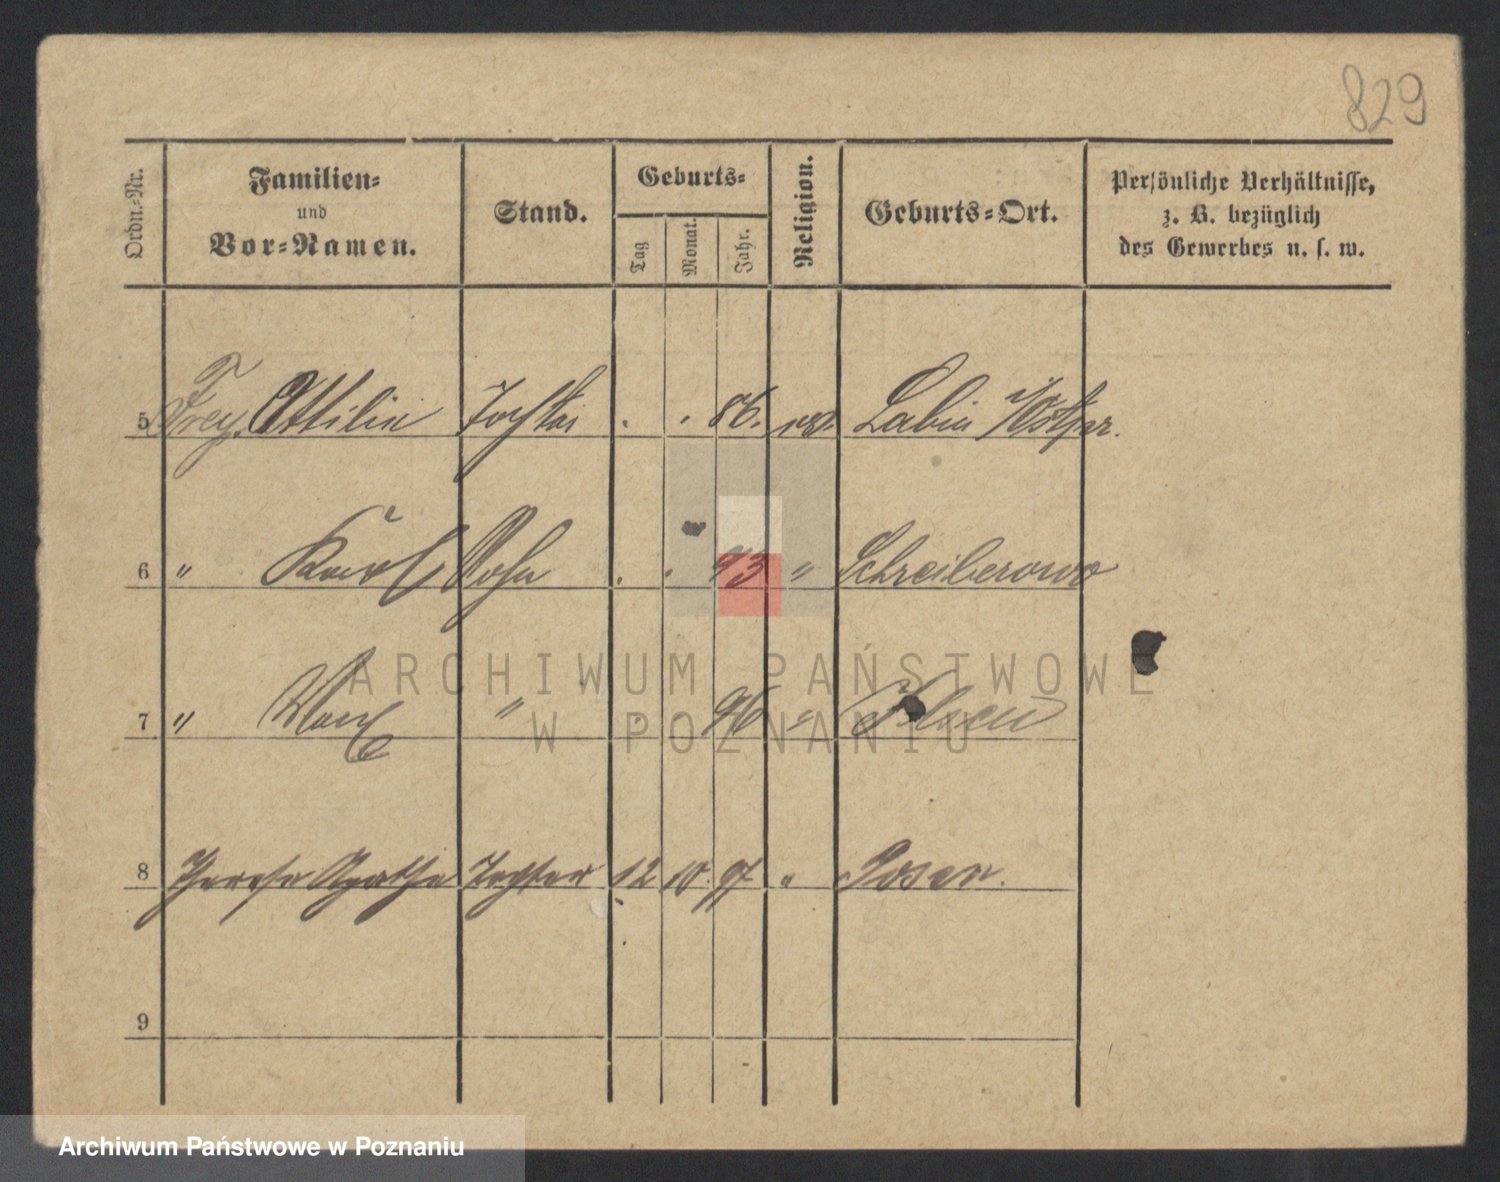 829
Ordn.-Nr. Familien- und Vor-Namen. Stand. Geburts- Tag Monat. Jahr. Religion. Geburts-Ort. Persönliche Verhältnisse, z. B. bezüglich des Gewerbes u. s. w.
5 Frey, Ottilie . . 86. Westpr.
6 " Karl Sohn . . 93 " Schreiberowo
7 " Max " . 96 "
8 Therese Agathe Tochter 12 10. 97 " Posen.
9
ARCHIWUM PAŃSTWOWE
W POZNANIU
Archiwum Państwowe w Poznaniu